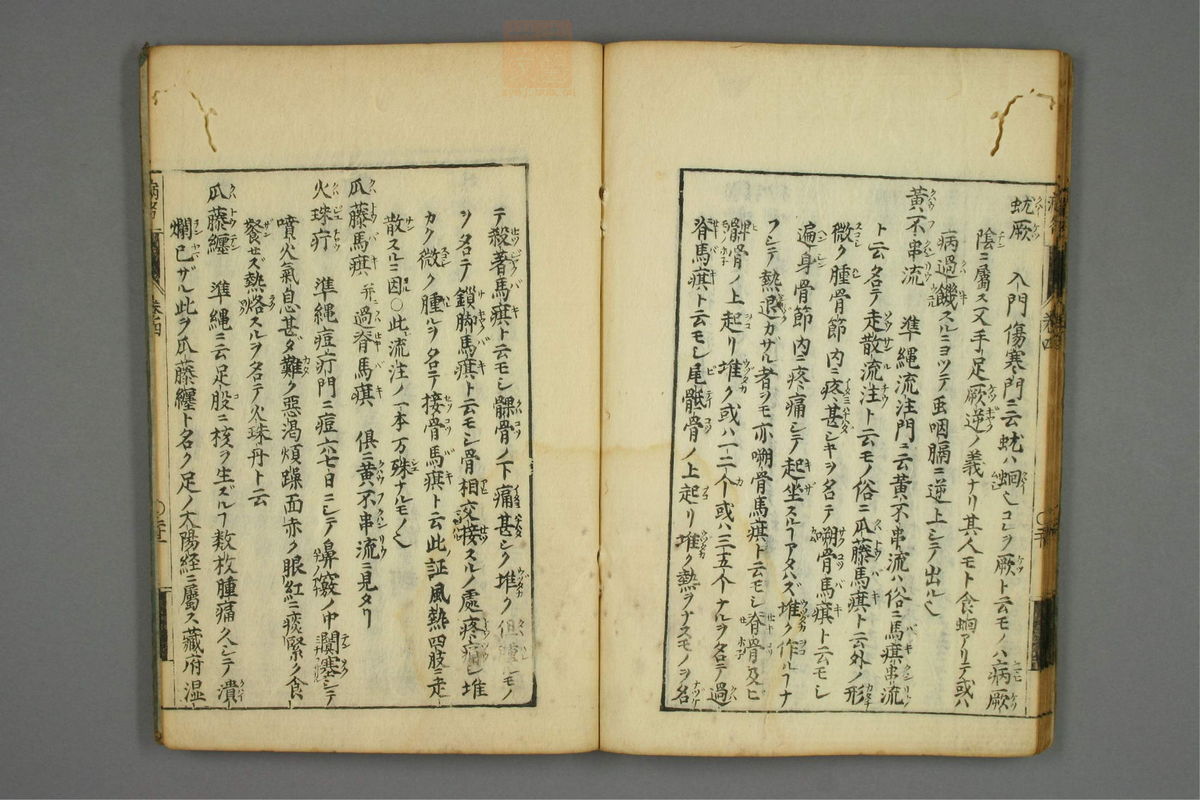 蚘厥 入門傷寒門ニ云蚘ハ蛔也コレヲ厥ト云モノハ病厥
陰ニ屬ス又手足厥逆ノ義ナリ其人モト食蛔アリテ或ハ
病過饑スルニヨツテ蚘咽膈ニ逆上シテ出ル也
黃不串流 準縄流注門ニ云黃不串流ハ俗ニ馬䘑串流
ト云名テ走散流注ト云モノ俗ニ瓜藤馬䘑ト云外ノ形
微ク腫骨節ノ内ニ疼甚シキヲ名テ嗍骨馬䘑ト云モシ
遍身骨節ノ内ニ疼痛シテ起坐スルアタハズ堆ク作ルナ
フシテ熱退カザル者ヲモ亦嗍骨馬䘑ト云モシ脊骨及ヒ
髀骨ノ上起リ堆ク或ハ一二个或ハ三五个ナルヲ名テ過
脊馬䘑ト云モシ尾骶骨ノ上起リ堆ク熱ヲナスモノヲ名
テ殺著馬䘑ト云モシ髁骨ノ下痛甚シク堆ク但腫ルモノ
ヲ名テ鎖脚馬䘑ト云モシ骨相交接スルノ處疼痛シ堆
カク微ク腫ルヲ名テ接骨馬䘑ト云此証風熱四肢ニ走
散スルニ因○此流注ノ一本万殊ナルモノ也
瓜藤馬䘑 并過脊馬䘑 俱ニ黃不串流ニ見タリ
火珠疔 準縄痘疔門ニ痘六七日ニシテ鼻竅ノ中瀾塞シテ
噴火氣息甚ダ難ク惡渇煩躁面赤ク眼紅ニ痰緊ク食
餐セズ熱烙スルヲ名テ火珠丹ト云
瓜藤纏 準縄ニ云足股ニ核ヲ生ズル数枚腫痛久シテ潰
爛已ザル此ヲ瓜藤纏ト名ク足ノ太陽経ニ屬ス藏府湿